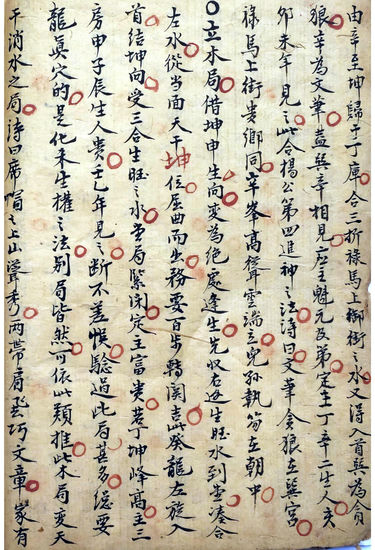 由辛至坤歸于丁庫合三折祿馬上御街之水又得入首巽為貪
狼辛為文筆蓋巽辛相見一應主魁元及第定主丁辛二生人亥
卯未年見之此合楊公第四進神之法詩曰文筆貪狼在巽宮
祿馬上街貴鄉同辛峯高聳雲端立兒孫執笏在朝中
立木局借坤申生向變為絕處逢生先收右邊生旺水到堂湊合
左水從當面天干坤位屈曲而出務要百步轉関吉此癸龍左旋入
首结坤向受三合生旺之水堂局緊閉定主富貴若丁坤峰高主三
房申子辰生人貴壬乙年見之断不差悞騐過此局甚多緫要
龍真穴的是化杀生權之法别局皆然可依此類推此木局變天
干消水之局詩曰席帽之上山聳秀両帶局 巧文章家有